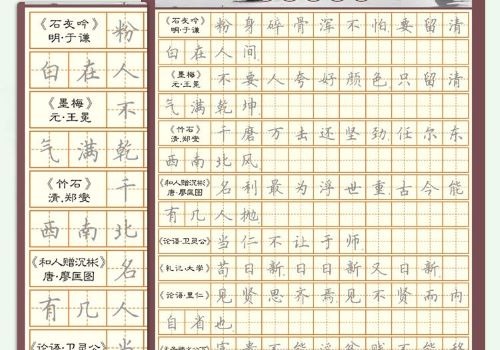 《石灰吟》
明·于谦
粉
白在人
《墨梅》
元·王冕
不
气满乾
《竹石》
清·郑燮
千
西南北
《和人赠沉彬》
唐·廖匡图
名
有几人
《论语·卫灵公》
当
《石灰吟》
明·于谦
粉身碎骨浑不怕要留清
白在人间
《墨梅》
元·王冕
不要人夸好颜色只留清
气满乾坤
《竹石》
清·郑燮
千磨万击还坚劲任尔东
西南北风
《和人赠沉彬》
唐·廖匡图
名利最为浮世重古今能
有几人抛
《论语·卫灵公》
当仁不让于师
《礼记·大学》
苟日新日日新又日新
《论语·里仁》
见贤思齐焉见不贤而内
自省也
富贵不能淫贫贱不能移